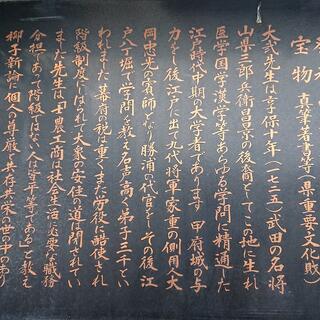 宝物 真筆著書等(県重要文化財)
大弐先生は享保十年(一七二五)武田の名将
山県三郎兵衛昌景の後裔としてこの地に生れ
医学国学漢学等あらゆる学問に精通した
江戸時代中期の大学者であります 甲府城の与
力をし後江戸に出て九代将軍家重の側用人大
岡忠光の賓師となり勝浦の代官をしその後江
戸八丁堀で学問を教え名声高く弟子三千とい
われました 幕府の税は重くまた労役に酷使され
階級制度にはられて大衆の安住の道は閉されてい
また先生は「士農工商は社会生活に必要な職務
分担であって階級ではない人は皆平等である」と教え
柳子新論に個人の尊厳と共存共栄の世の中のあり